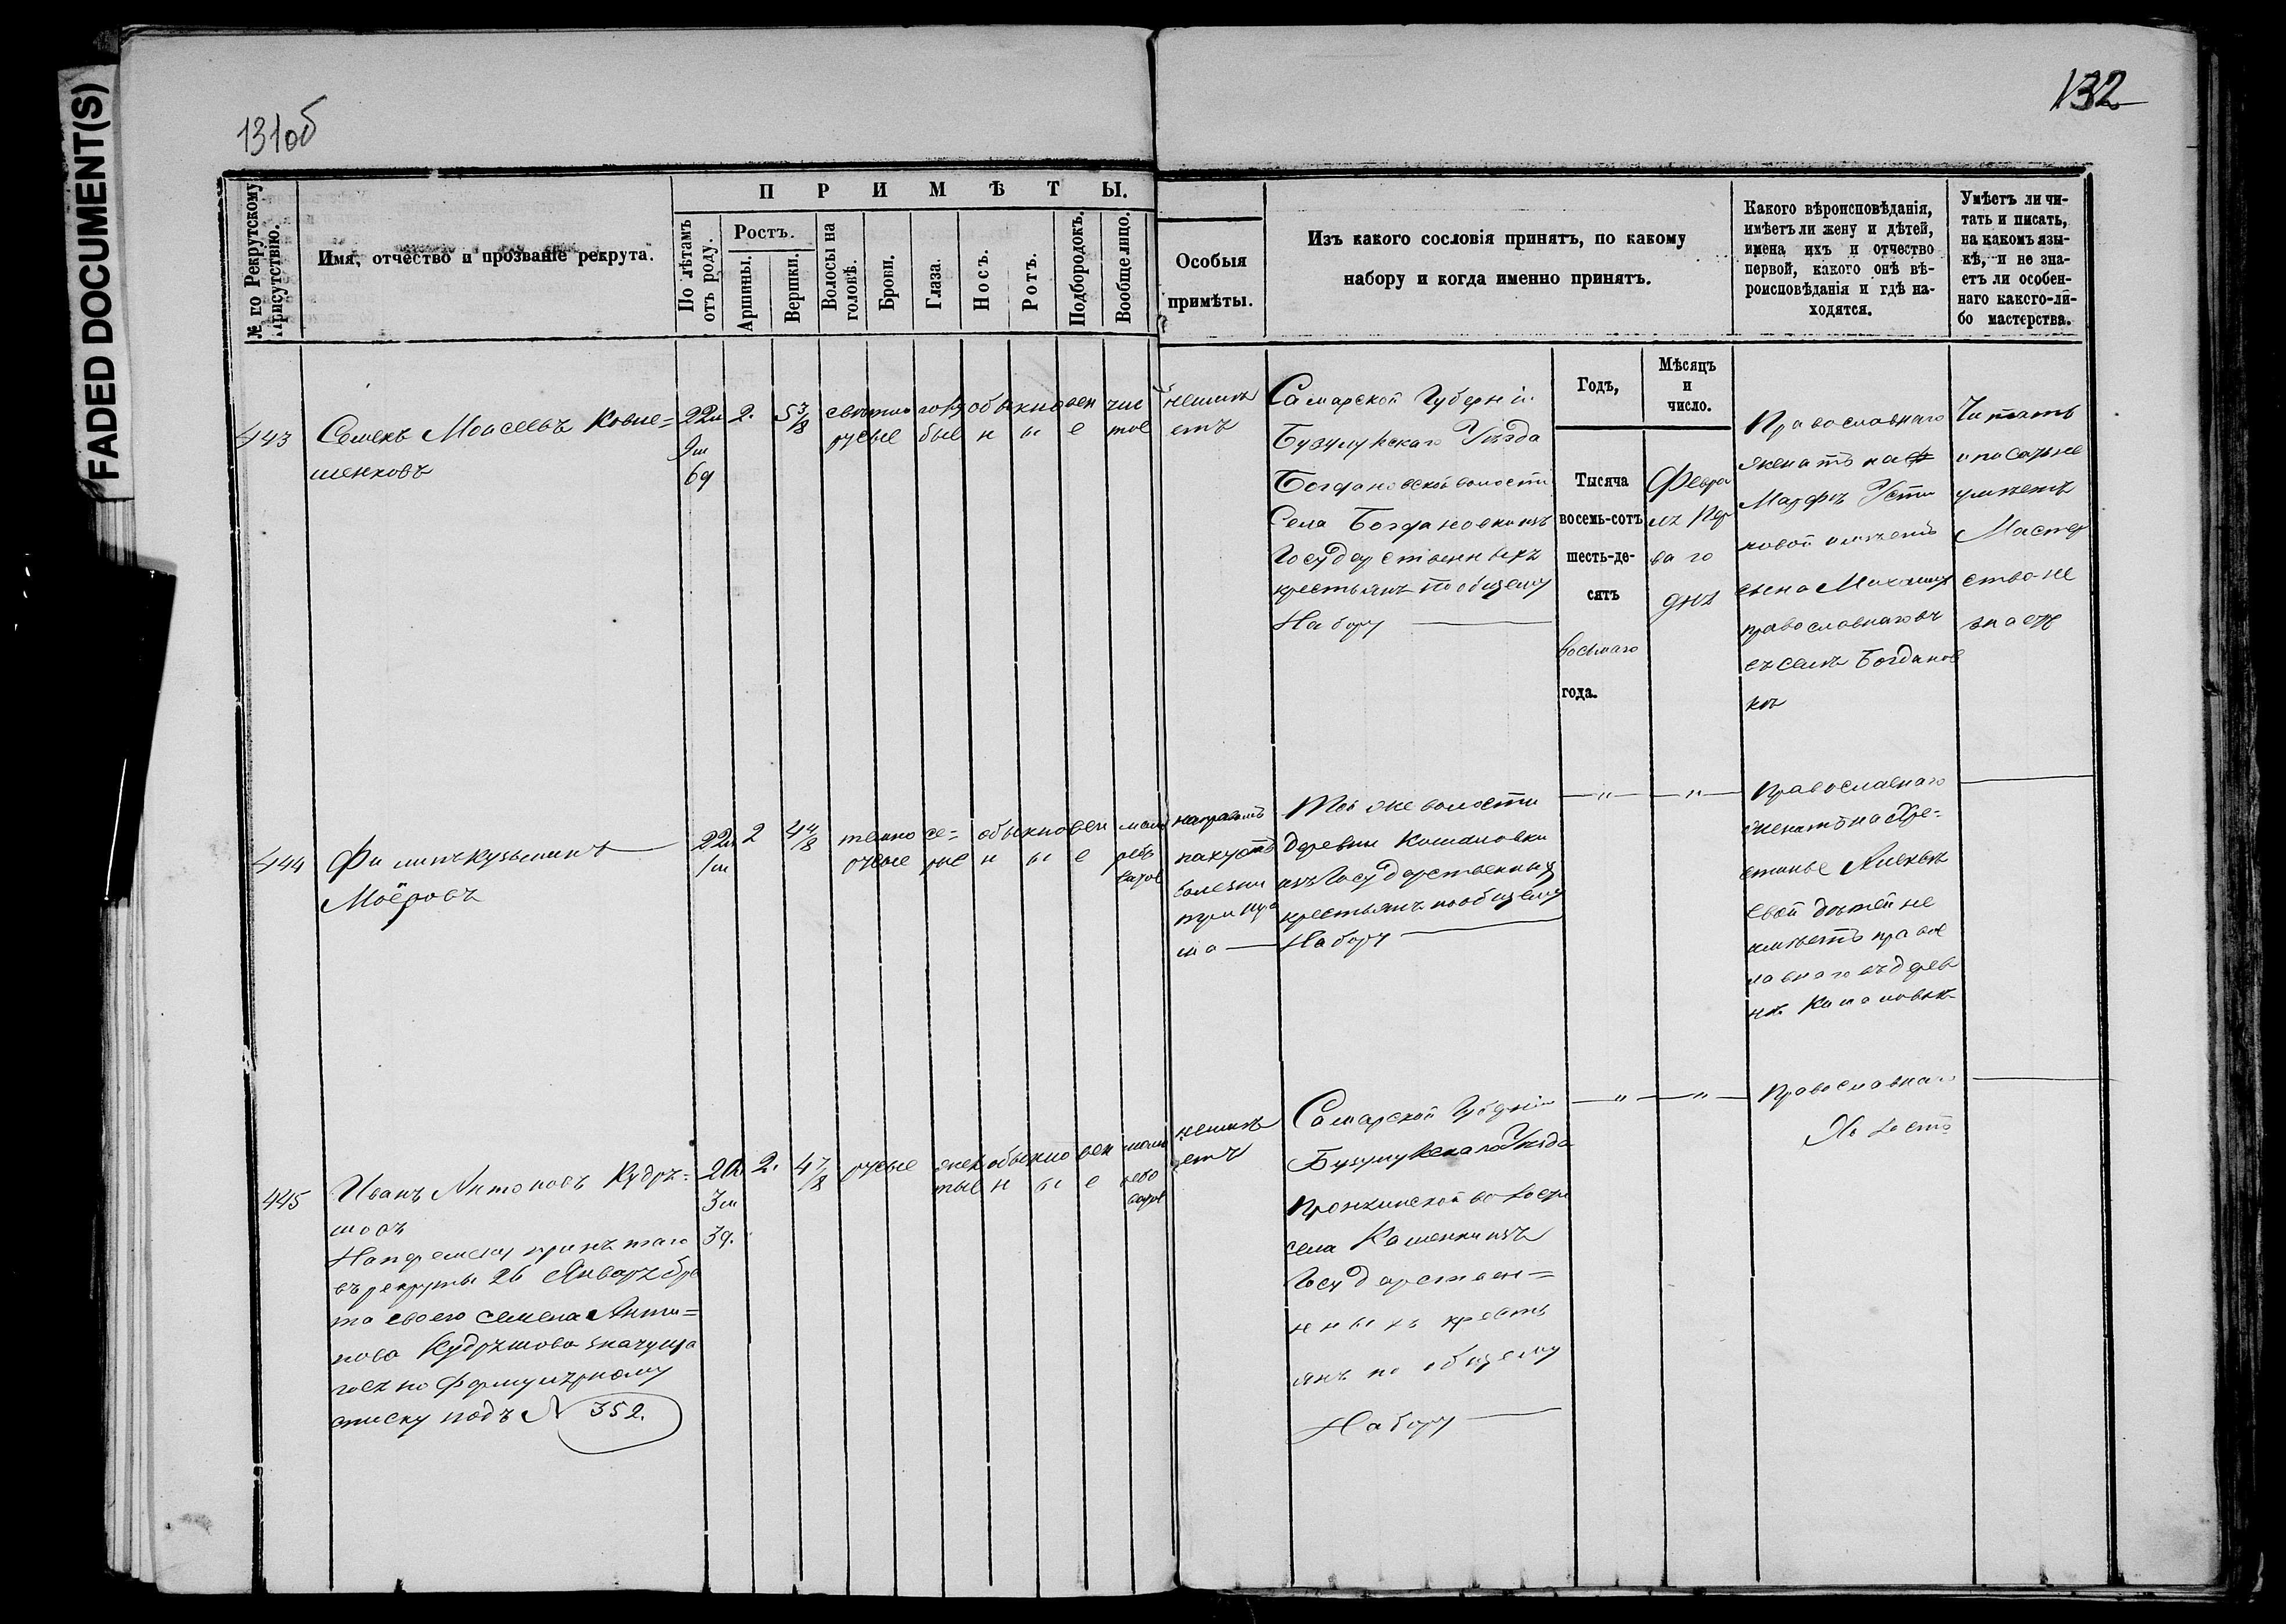 FADED DOCUMENT(S)
131об
132
№ по Рекрутскому присутствію.
Имя, отчество и прозваніе рекрута.
ПРИМѢТЫ.
По лѣтамъ отъ роду.
Ростъ.
Аршины.
Вершки.
Волосы на головѣ.
Брови.
Глаза.
Носъ.
Ротъ.
Подбородокъ.
Вообще лицо.
Особыя
примѣты.
Изъ какого сословія принятъ, по какому
набору и когда именно принятъ.
Какого вѣроисповѣданія,
имѣетъ ли жену и дѣтей,
имена ихъ и отчество
первой, какого онѣ вѣ-
роисповѣданія и гдѣ на-
ходятся.
Умѣетъ ли чи-
тать и писать,
на какомъ язы-
кѣ, и не зна-
етъ ли особен-
наго какого-ли-
бо мастерства.
Годъ,
Мѣсяцъ
и
число.
443
Семенъ Моисеевъ
22л
9м
6д
2.
5 3/8
свѣтло
русые
голу
бые
обыкновен
н ы е
чис
тое
неимѣ
етъ
Самарской Губерніи
Бузулукскаго Уѣзда
Богдановской волости
Села Богдановки изъ
Государственныхъ
крестьянъ по общему
Набору
Тысяча
восемь-сотъ
шесть-де-
сятъ
восьмаго
года.
Февра
ля Пер
ва го
дня
Православнаго
женатъ на
Марфѣ Усти
новой имѣетъ
сына Михаила
православнаго въ
въ селѣ Богданов
кѣ
Читать
и писать не
умѣетъ
Мастер
ства не
знаетъ
444
Филипъ Кузьминъ
Моёровъ
22л
1м
2
4 4/8
темно
русые
се=
рые
обыкновен
н ы е
мало
рябо
ватое
Той же волости
деревни
изъ Государственныхъ
крестьянъ по общему
Набору
— " — " —
Православнаго
женатъ на
дѣтей не
имѣетъ правос
лавнаго въ дерев
нѣ
445
Иванъ Антоновъ Кудря=
шовъ
На перемену принятаго
въ рекруты 26 Января бра
та своего Семена Анто=
нова Кудряшова значуща
гося по формулярному
списку подъ № 352.
20л
3м
3д.
2.
4 7/8
русые
жел
тые
обыкновен
н ы е
мало
рябо
ватое
неимѣ
етъ
Самарской Губерніи
Бузулукскаго Уѣзда
Пронкинской волости
села Каменки изъ
Государствен=
ныхъ кресть
янъ по общему
Набору
— " — " —
Православнаго
Холостъ